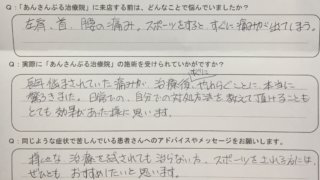 Q：「あんさんぶる治療院」に来店する前は、どんなことで悩んでいましたか？
左肩、首、腰の痛み。スポーツをすると、すぐに痛みが出てしまう。
Q：実際に「あんさんぶる治療院」の施術を受けられていかがですか？
すぐに
長年悩まされていた痛みが、治療後、やわらぐことに、本当に
驚きました。日常での、自分での対処方法を教えて頂けることも
とても効果があった様に思います。
Q：同じような症状で苦しんでいる患者さんへのアドバイスやメッセージをお願いします。
様々な治療を試されても治らない方、スポーツをされる方には、
ぜひとも おすすめしたいと思います。